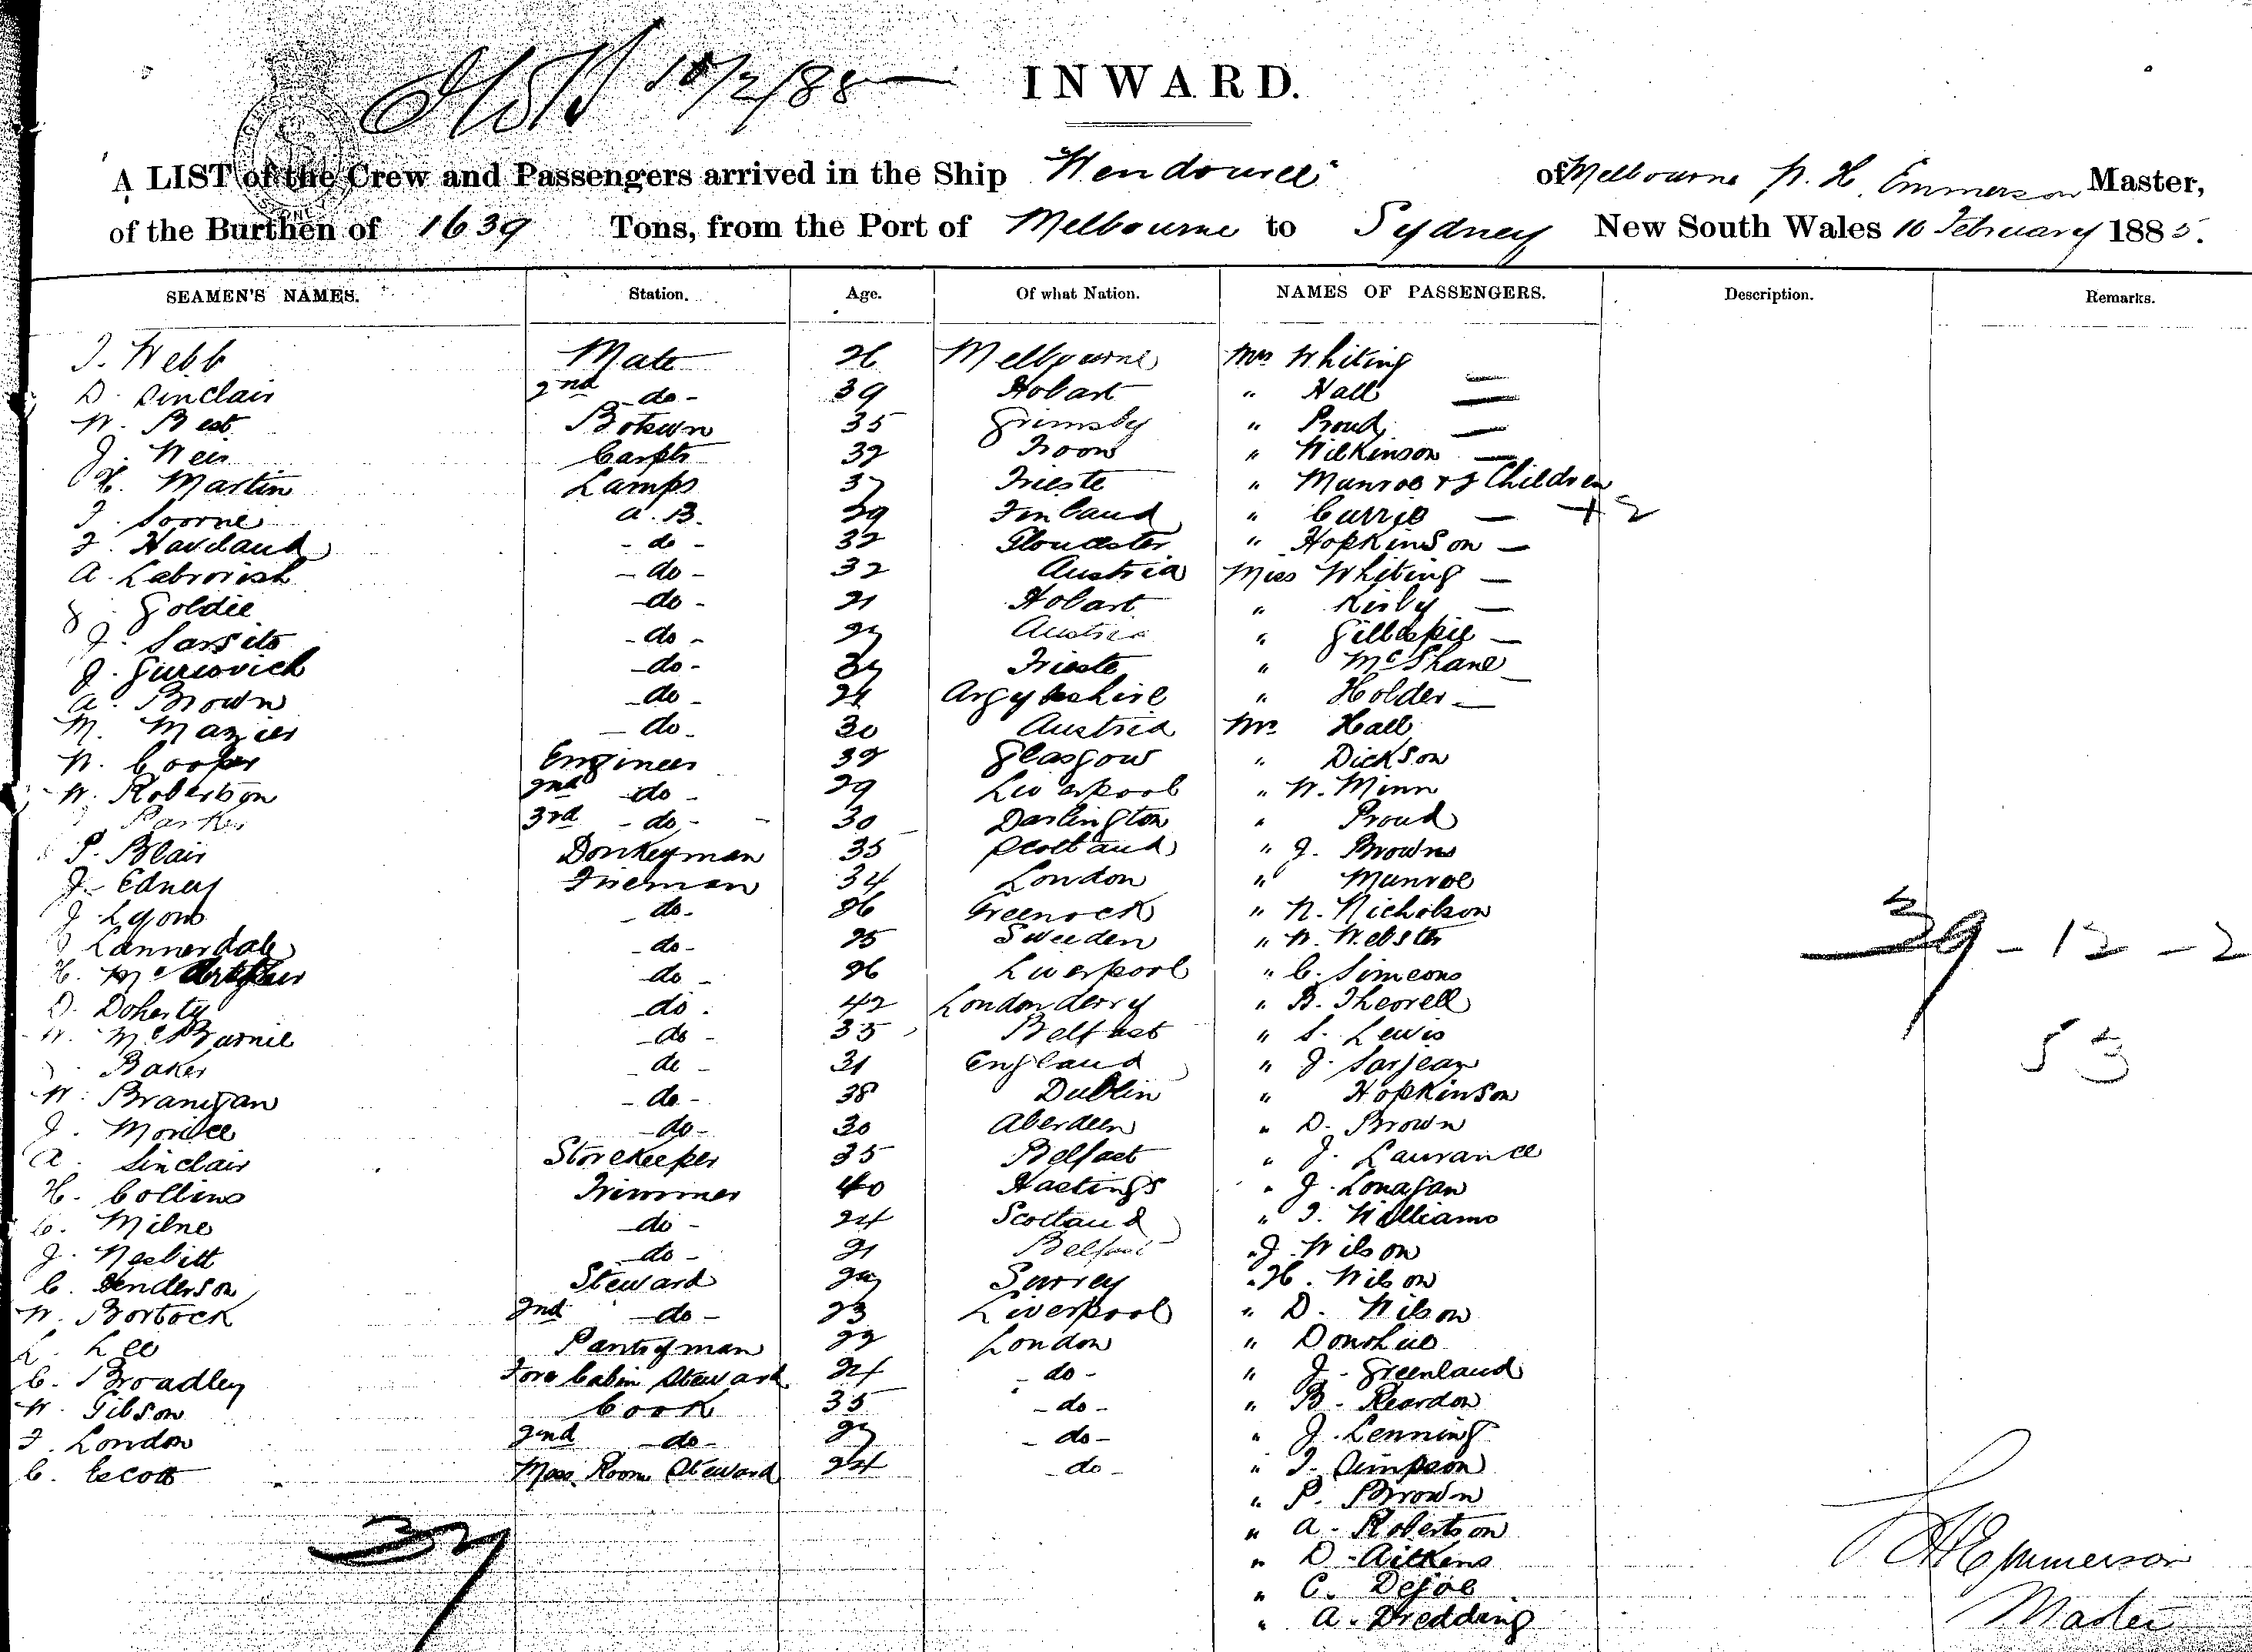 10/2/88
INWARD.
A LIST of the Crew and Passengers arrived in the Ship "Wendouree" of Melbourne H. Emmerson Master,
of the Burthen of 1639 Tons, from the Port of Melbourne to Sydney New South Wales 10 February 1885.
SEAMEN'S NAMES. Station. Age. Of what Nation. NAMES OF PASSENGERS. Description. Remarks.
Webb Mate 26 Melbourne Mrs Whiting
D. Sinclair 2nd - do - 39 Hobart " Hall —
W. Best Botswn 35 Grimsby " Proud —
J. Weir Carptr 32 Troon " Wilkinson —
H. Martin Lamps 37 Trieste " Munroe & Children
A.B. 29 Finland " Currie — + 2
F. Haviland - do - 32 Gloucester " Hopkinson —
A. - do - 32 Austria Miss Whiting —
J. Goldie - do - 21 Hobart " Kirby —
J. - do - 27 Austria " Gillespie —
J. - do - 37 Trieste " McShane —
A. Brown - do - Argyleshire " Holder —
M. Mazier - do - 30 Austria Mr. Hall
W. Cooper Engineer 32 Glasgow " Dickson
W. Robertson 2nd - do - 29 Liverpool " W. Minn
Parker 3rd - do - 30 Darlington " Proud
P. Blair Donkeyman 35 Scotland " J. Browne
J. Edney Fireman 34 London " Munroe
J. Lyons - do - 26 Greenock " N. Nicholson
Lannerdale - do - 25 Sweeden " W. Webster
H. Mc - do - 26 Liverpool " C. Simeons
D. Doherty - do - 42 Londonderry " B. Theorell
W. McBurnie - do - 35 Belfast " S. Lewis
Baker - do - 31 England " J. Sarjean
W. Branigan - do - 38 Dublin " Hopkinson
J. Morice - do - 30 Aberdeen " D. Brown
A. Sinclair Storekeeper 35 Belfast " J. Laurance
H. Collins Trimmer 40 Hastings " J. Lonagan
C. Milne - do - 24 Scotland " T. Williams
J. Nesbitt - do - 21 Belfast " J. Wilson
C. Henderson Steward Surrey " H. Wilson
W. Bortock 2nd - do - 23 Liverpool " D. Wilson
L. Lee Pantryman 22 London " Donohue
C. Broadley Fore Cabin Steward 24 - do - " J. Greenland
W. Gibson Cook 35 - do - " B. Reardon
F. London 2nd - do - 27 - do - " J. Lenning
C. Escott Mess Room Steward 24 - do - " T. Simpson
" P. Brown
" A. Robertson
" D. Aitkens
" C. Dejoe
" A. Dredding
39 - 12 - 2
53
37
Emmerson
Master